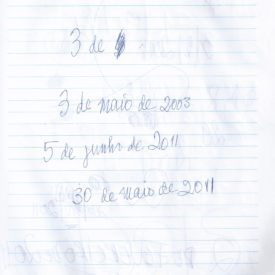 3 de
3 de maio de 2003
5 de junho de 2011
30 de maio de 2011